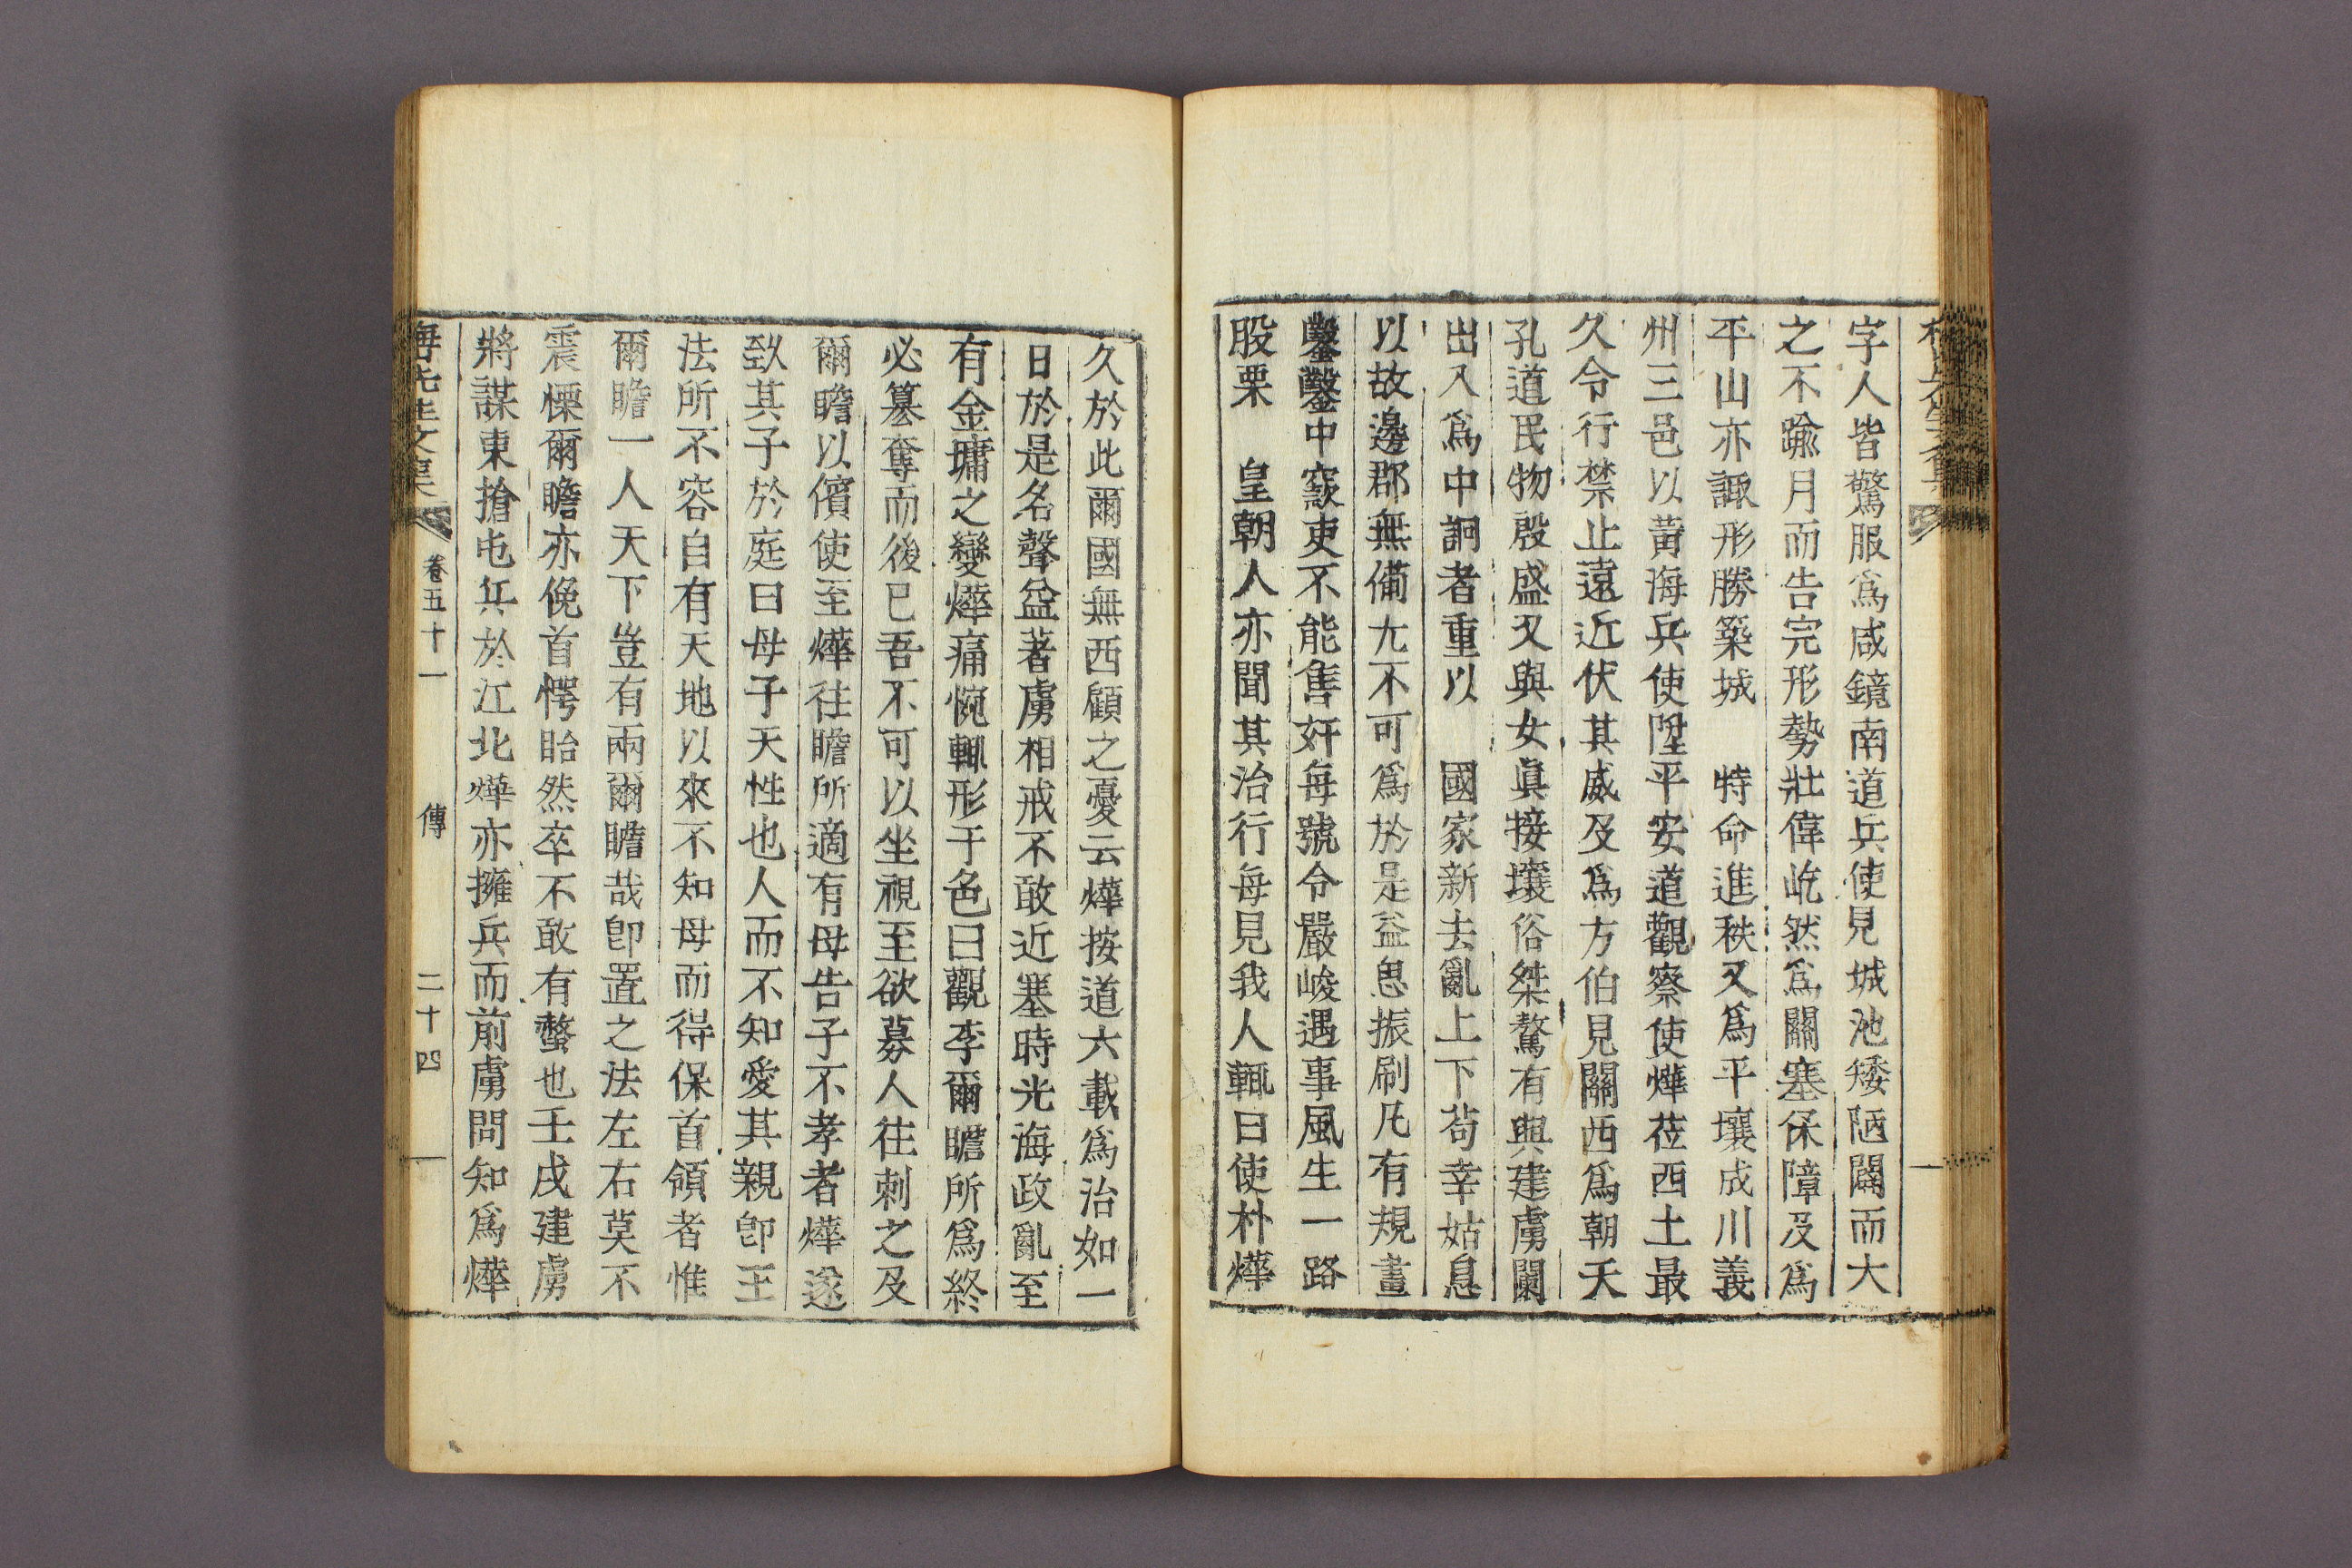 字人皆驚服爲咸鏡南道兵使見城池矮陋闢而大
之不踰月而告完形勢壯偉屹然爲關塞保障及爲
平山亦諏形勝築城 特命進秩又爲平壤成川義
州三邑以黃海兵使陞平安道觀察使燁莅西土最
久令行禁止遠近伏其威及爲方伯見關西爲朝天
孔道民物殷盛又與女眞接壤俗桀驁有與建虜闌
出入爲中詗者重以 國家新去亂上下苟幸姑息
以故邊郡無備尤不可爲於是益思振刷凡有規畫
鑿鑿中窾吏不能售奸每號令嚴峻遇事風生一路
股栗 皇朝人亦聞其治行每見我人輒曰使朴燁
久於此爾國無西顧之憂云燁按道六載爲治如一
日於是名聲益著虜相戒不敢近塞時光海政亂至
有金墉之變燁痛惋輒形于色曰觀李爾瞻所爲終
必簒奪而後已吾不可以坐視至欲募人往刺之及
爾瞻以儐使至燁往瞻所適有母告子不孝者燁遂
致其子於庭曰母子天性也人而不知愛其親卽王
法所不容自有天地以來不知母而得保首領者惟
爾瞻一人天下豈有兩爾瞻哉卽置之法左右莫不
震慄爾瞻亦俛首愕眙然卒不敢有螫也壬戌建虜
將謀東搶屯兵於江北燁亦擁兵而前虜問知爲燁
先生文集 卷五十一 傳 二十四